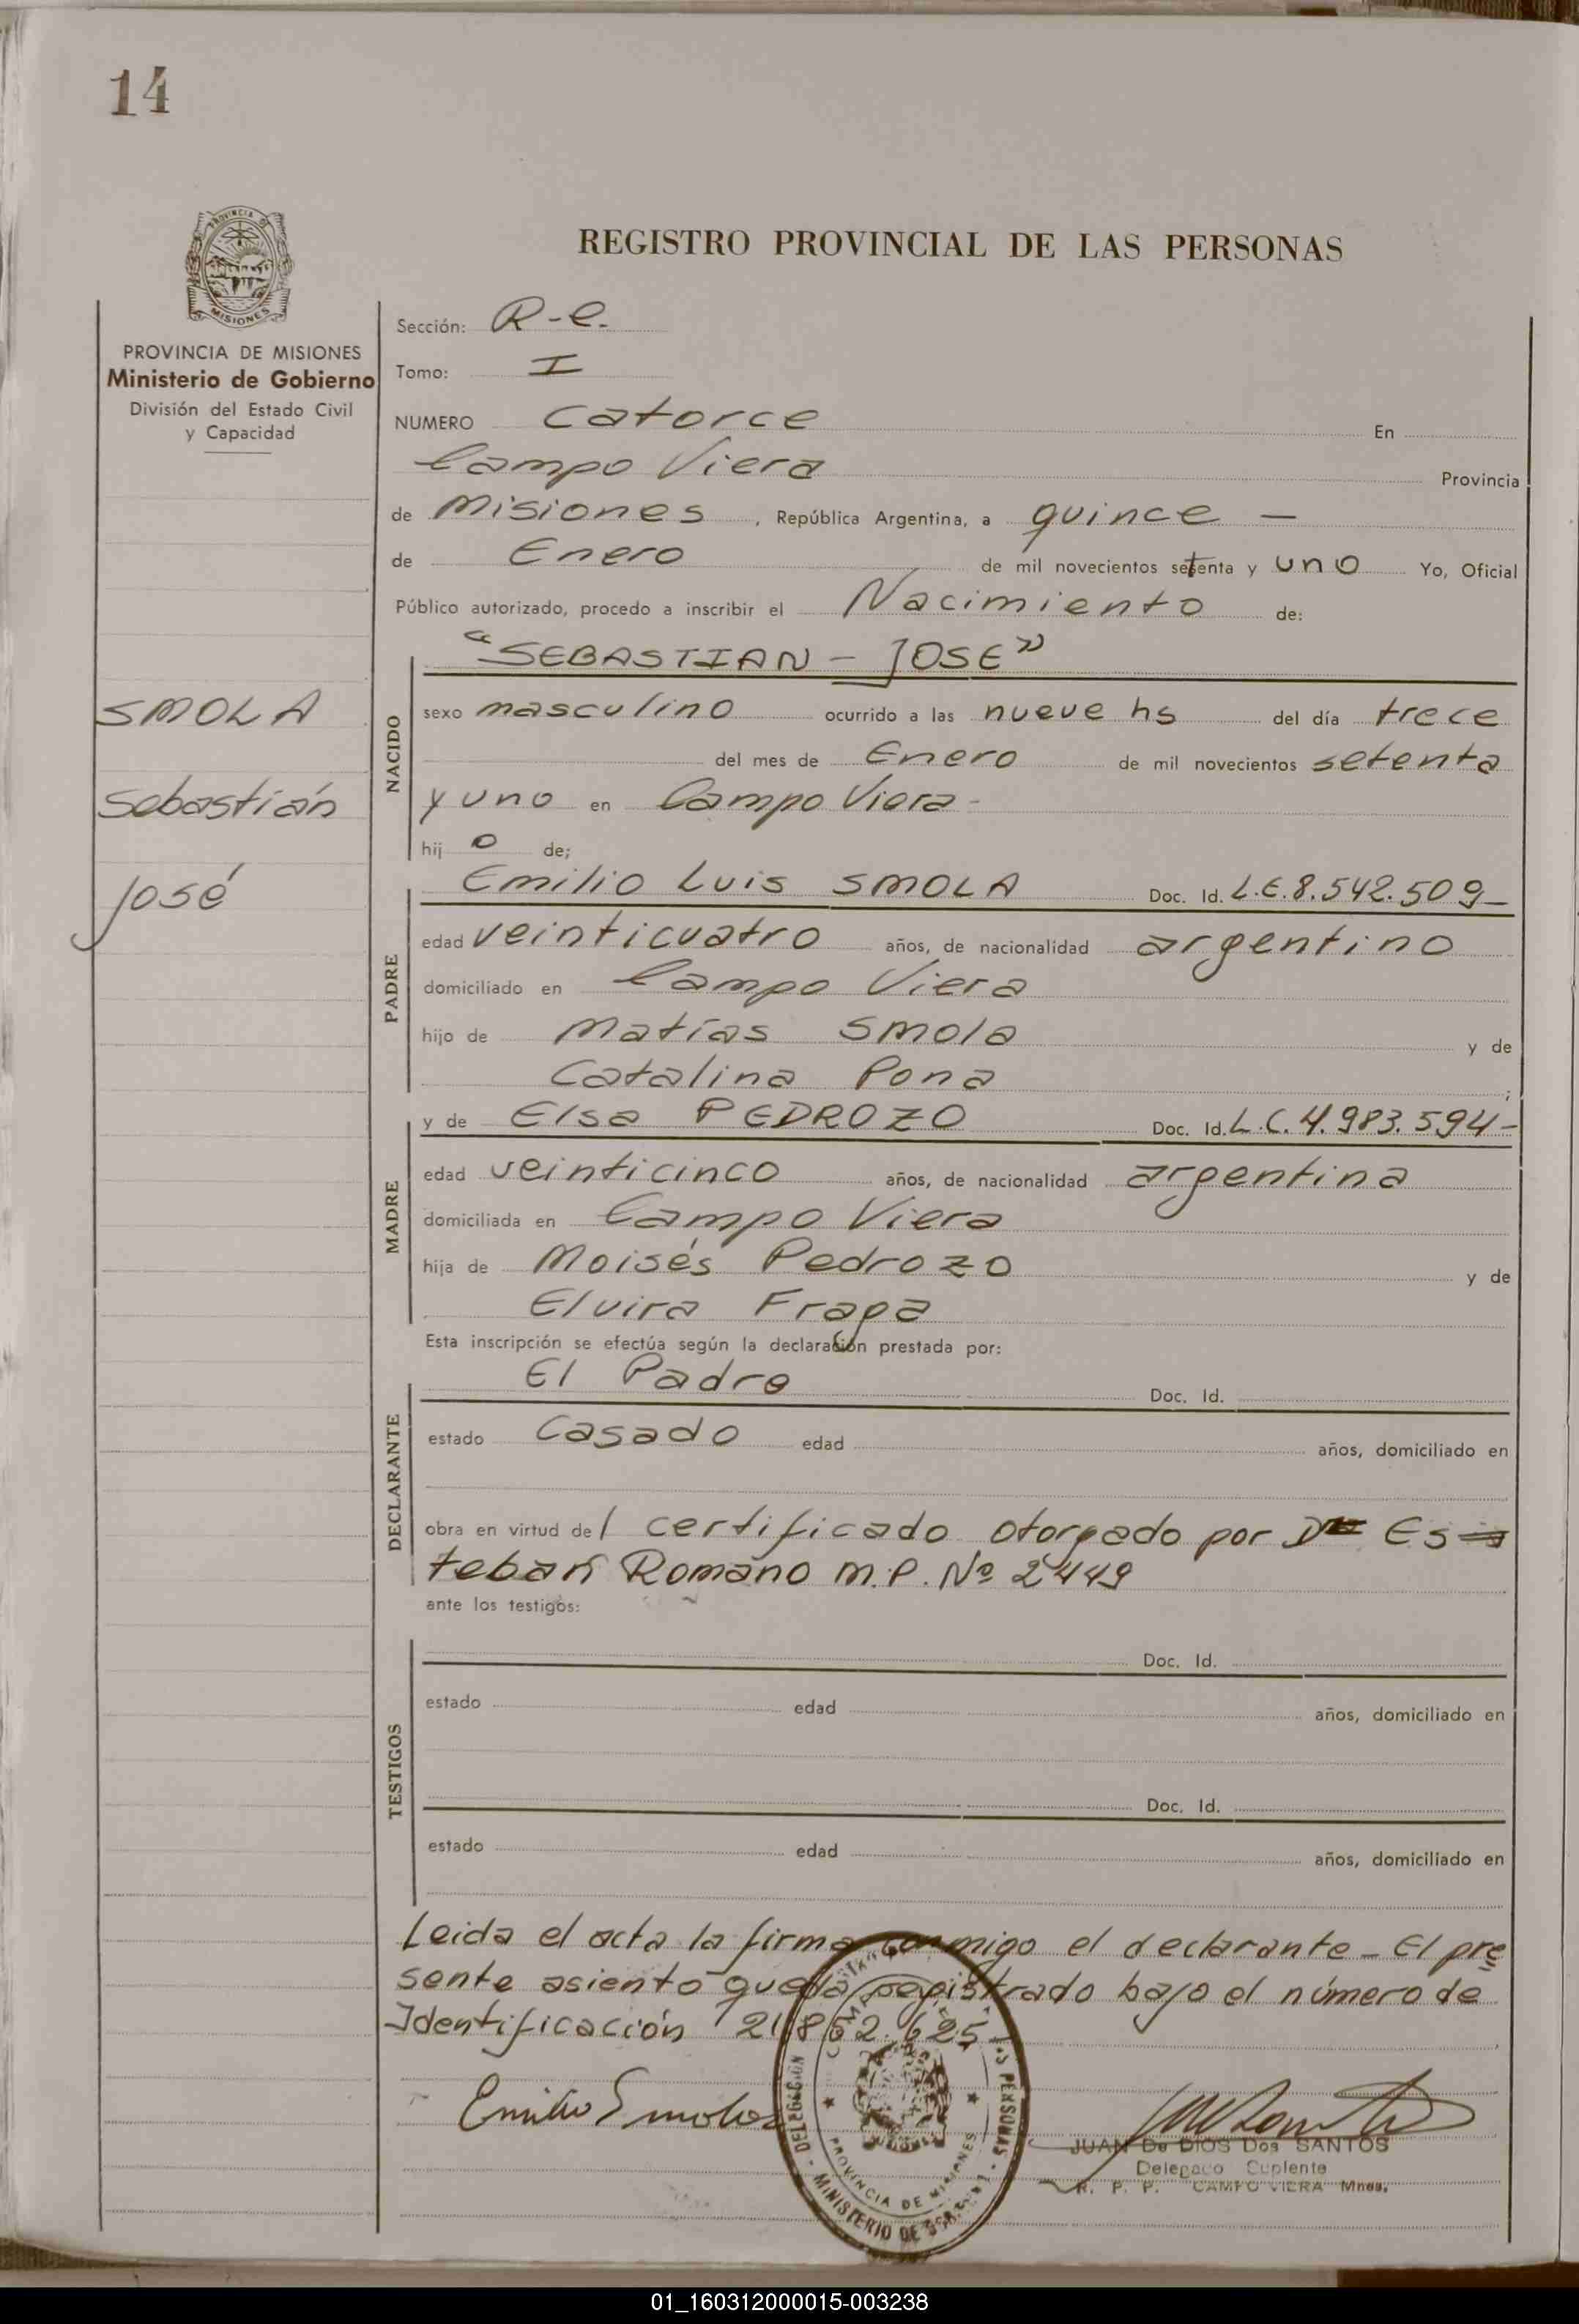 14
PROVINCIA DE
MISIONES
PROVINCIA DE MISIONES
Ministerio de Gobierno
División del Estado Civil
y Capacidad
SMOLA
Sebastián
José
REGISTRO PROVINCIAL DE LAS PERSONAS
Sección: R-C.
Tomo: I
NUMERO catorce En
Campo Viera Provincia
de Misiones, República Argentina, a quince —
de Enero de mil novecientos setenta y uno Yo, Oficial
Público autorizado, procedo a inscribir el Nacimiento de:
"SEBASTIAN - JOSE"
NACIDO
sexo masculino ocurrido a las nueve hs del día trece
del mes de Enero de mil novecientos setenta
y uno en Campo Viera-
hij o de;
Emilio Luis SMOLA Doc. Id. L.E.8.542.509-
PADRE
edad veinticuatro años, de nacionalidad argentino
domiciliado en Campo Viera
hijo de Matías Smola y de
Catalina Pona;
y de Elsa PEDROZO Doc. Id. L.C. 4.983.594-
MADRE
edad veinticinco años, de nacionalidad argentina
domiciliada en Campo Viera
hija de Moisés Pedrozo y de
Elvira Fraga
Esta inscripción se efectúa según la declaración prestada por:
El Padre Doc. Id.
DECLARANTE
estado Casado edad años, domiciliado en
obra en virtud del certificado otorgado por Dr Es
teban Romano M.P. Nº 2449
ante los testigos:
Doc. Id.
TESTIGOS
estado edad años, domiciliado en
Doc. Id.
estado edad años, domiciliado en
Leida el acta la firma conmigo el declarante - El pre
sente asiento queda registrado bajo el número de
Identificación 21.862.625-
Emilio Smola
PROVINCIA DE MISIONES
MINISTERIO DE
JUAN De DIOS Dos SANTOS
Delegado Suplente
R. P. P. CAMPO VIERA Mnes.
01_160312000015-003238